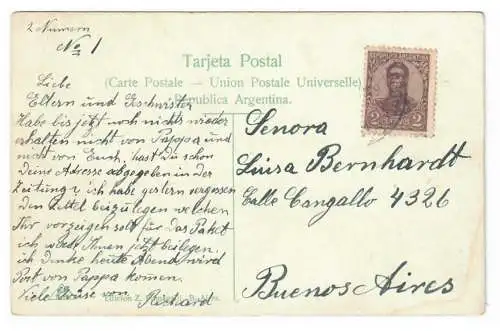 2 Numern
No 1
Tarjeta Postal
(Carte Postale — Union Postale Universelle)
Republica Argentina.
Liebe
Eltern und Geschwister
Habe bis jetzt noch nichts wieder
erhalten nicht von Pappa und
nicht von Euch, hast Du schon
Deine Adresse abgegeben in der
Zeitung, ich habe gestern vergessen
den Zettel beizulegen welchen
Ihr vorzeigen solt für das Paket
ich werd Ihnen jetzt beilegen.
ich denke heute Abend wird
Post von Pappa kommen.
Viele Grüsse von Richard
Edition Z.
2
Senora
Luisa Bernhardt
Calle Cangallo 4326
Buenos Aires